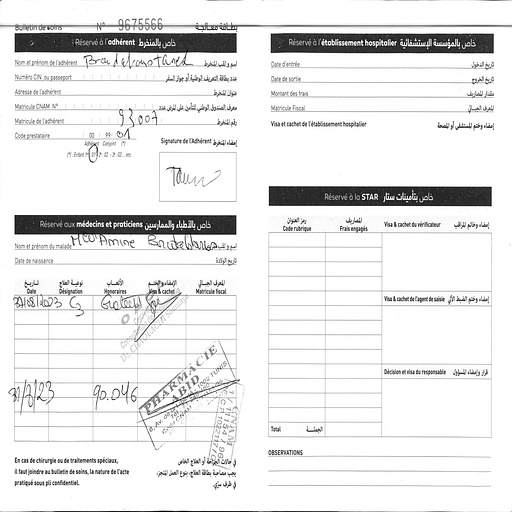 Bulletin de soins N° 9675566 بطاقة معالجة
Réservé à l'adhérent خاص بالمنخرط
Nom et prénom de l'adhérent اسم و لقب المنخرط
Numéro CIN ou passeport عدد بطاقة التعريف الوطنية أو جواز السفر
Adresse de l'adhérent عنوان المنخرط
Matricule CNAM N° معرف الصندوق الوطني للتأمين على المرض عدد
Matricule de l'adhérent 93007 رقم المنخرط
Code prestataire 00 99 01
Adhérent Conjoint (*)
(*) : Enfant 1er 01 2è - 02 - 3è - 03 ... etc
Signature de l'Adhérent إمضاء المنخرط
Réservé aux médecins et praticiens خاص بالأطباء والممارسين
Nom et prénom du malade Med Amine اسم و لقب
Date de naissance تاريخ الولادة
تاريخ نوعية العلاج الأتعاب الإمضاء والختم المعرف الجبائي
Date Désignation Honoraires Visa & cachet Matricule fiscal
C3 Gratuit
PHARMACIE
ABID
1002 TUNIS
31/8/23 90.046
En cas de chirurgie ou de traitements spéciaux,
il faut joindre au bulletin de soins, la nature de l'acte
pratiqué sous pli confidentiel.
في حالات الجراحة أو العلاج الخاص
يجب مصاحبة بطاقة العلاج، بنوع العمل المنجز،
في ظرف سري.
Réservé à l'établissement hospitalier خاص بالمؤسسة الإستشفائية
Date d'entrée تاريخ الدخول
Date de sortie تاريخ الخروج
Montant des frais مقدار المصاريف
Matricule Fiscal المعرف الجبائي
Visa et cachet de l'établissement hospitalier إمضاء وختم المستشفى أو المصحة
Réservé à la STAR خاص بتأمينات ستار
رمز العنوان المصاريف
Code rubrique Frais engagés
Visa & cachet du vérificateur إمضاء وخاتم المراقب
Visa & cachet de l'agent de saisie إمضاء وختم الضبط الآلي
Décision et visa du responsable قرار وإمضاء المسؤول
Total الجملة
OBSERVATIONS